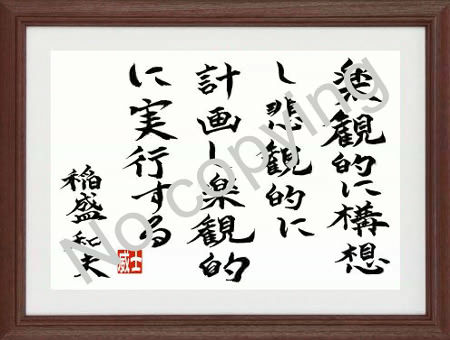 楽観的に構想
し悲観的に
計画し楽観的
に実行する
稲盛和夫
威士
No copying